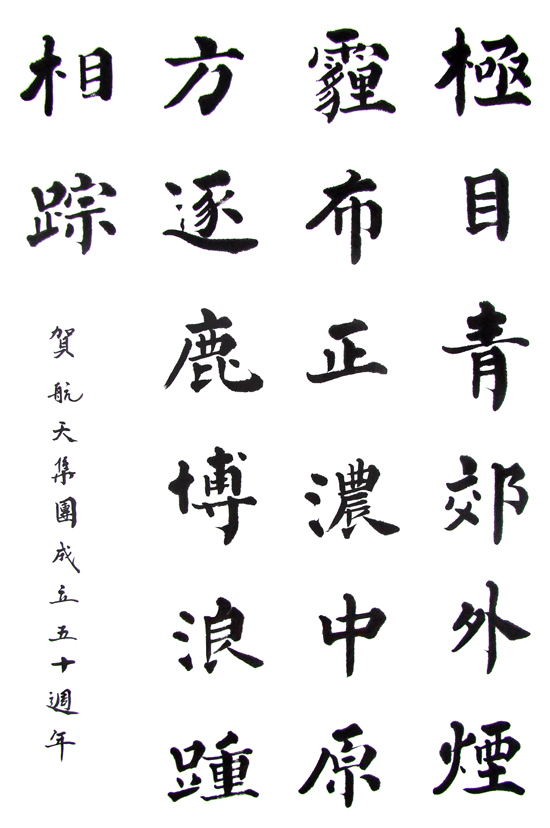 極目青郊外煙
霾布正濃中原
方逐鹿博浪踵
相踪
賀航天集團成立五十週年